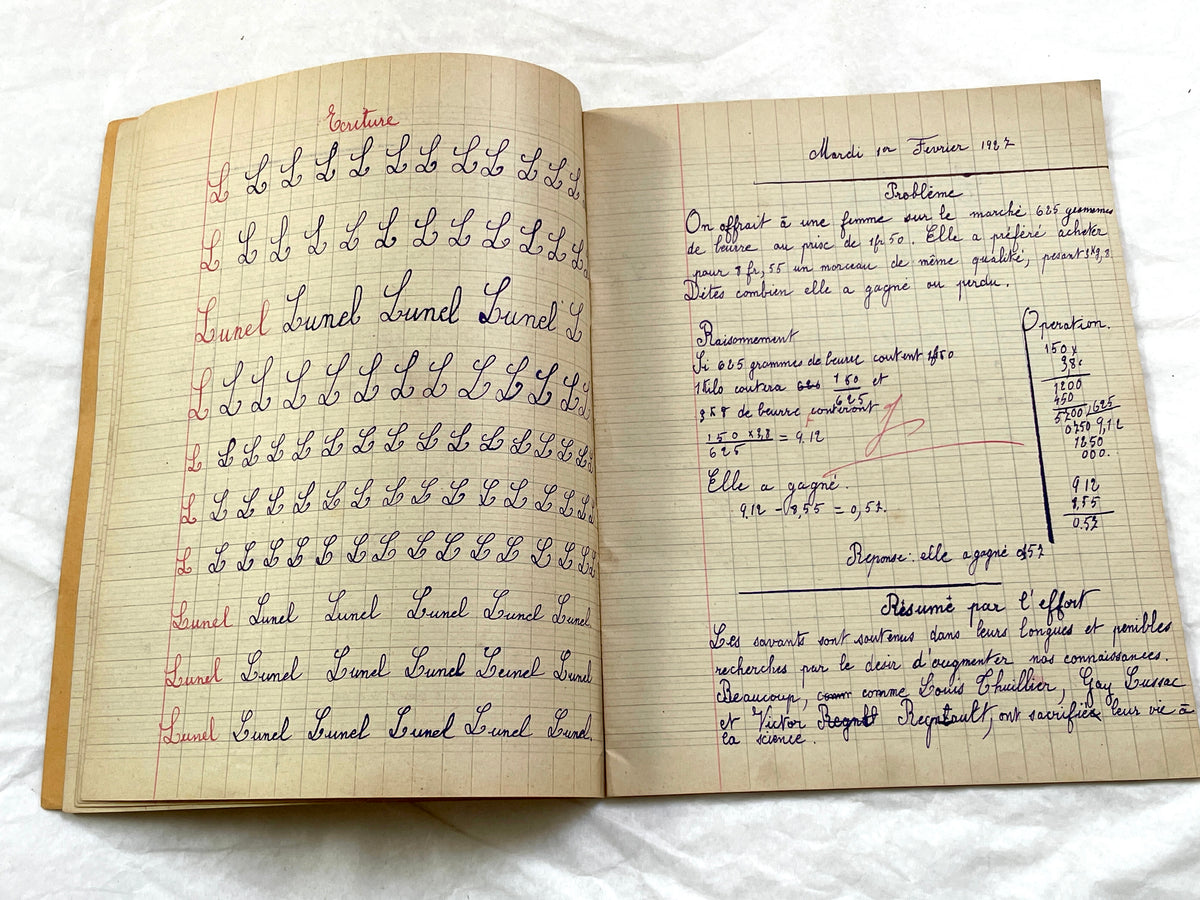 Ecriture
L L L L L L L L L L L L
L L L L L L L L L L L L
Lunel Lunel Lunel Lunel L
L L L L L L L L L L L L
L L L L L L L L L L L L L L
L L L L L L L L L L L L L L
L L L L L L L L L L L L L L
Lunel Lunel Lunel Lunel Lunel Lunel.
Lunel Lunel Lunel Lunel Lunel Lunel
Lunel Lunel Lunel Lunel Lunel Lunel.
Mardi 1er Fevrier 1927
Problème
On offrait à une femme sur le marché 625 grammes
de beurre au prix de 1fr50. Elle a préféré acheter
pour 8 fr,55 un morceau de même qualité, pesant 3k8
Dites combien elle a gagné ou perdu.
Raisonnement
Si 625 grammes de beurre coutent 1f50
1 kilo coutera 150/625 et
3k8 de beurre couteront
150 x 3,8 / 625 = 9.12
Elle a gagné.
9,12 - 8,55 = 0,57.
Reponse: elle a gagné 0f57
Operation.
150 x
3,8
1200
450
5700 625
0750 9,12
1250
000.
9 12
8,55
0.57
Résumé par l'effort
Les savants sont soutenus dans leurs longues et penibles
recherches par le desir d'augmenter nos connaissances.
Beaucoup, comme Louis Thuillier, Gay Lussac
et Victor Regnault, ont sacrifiés leur vie à
la science.